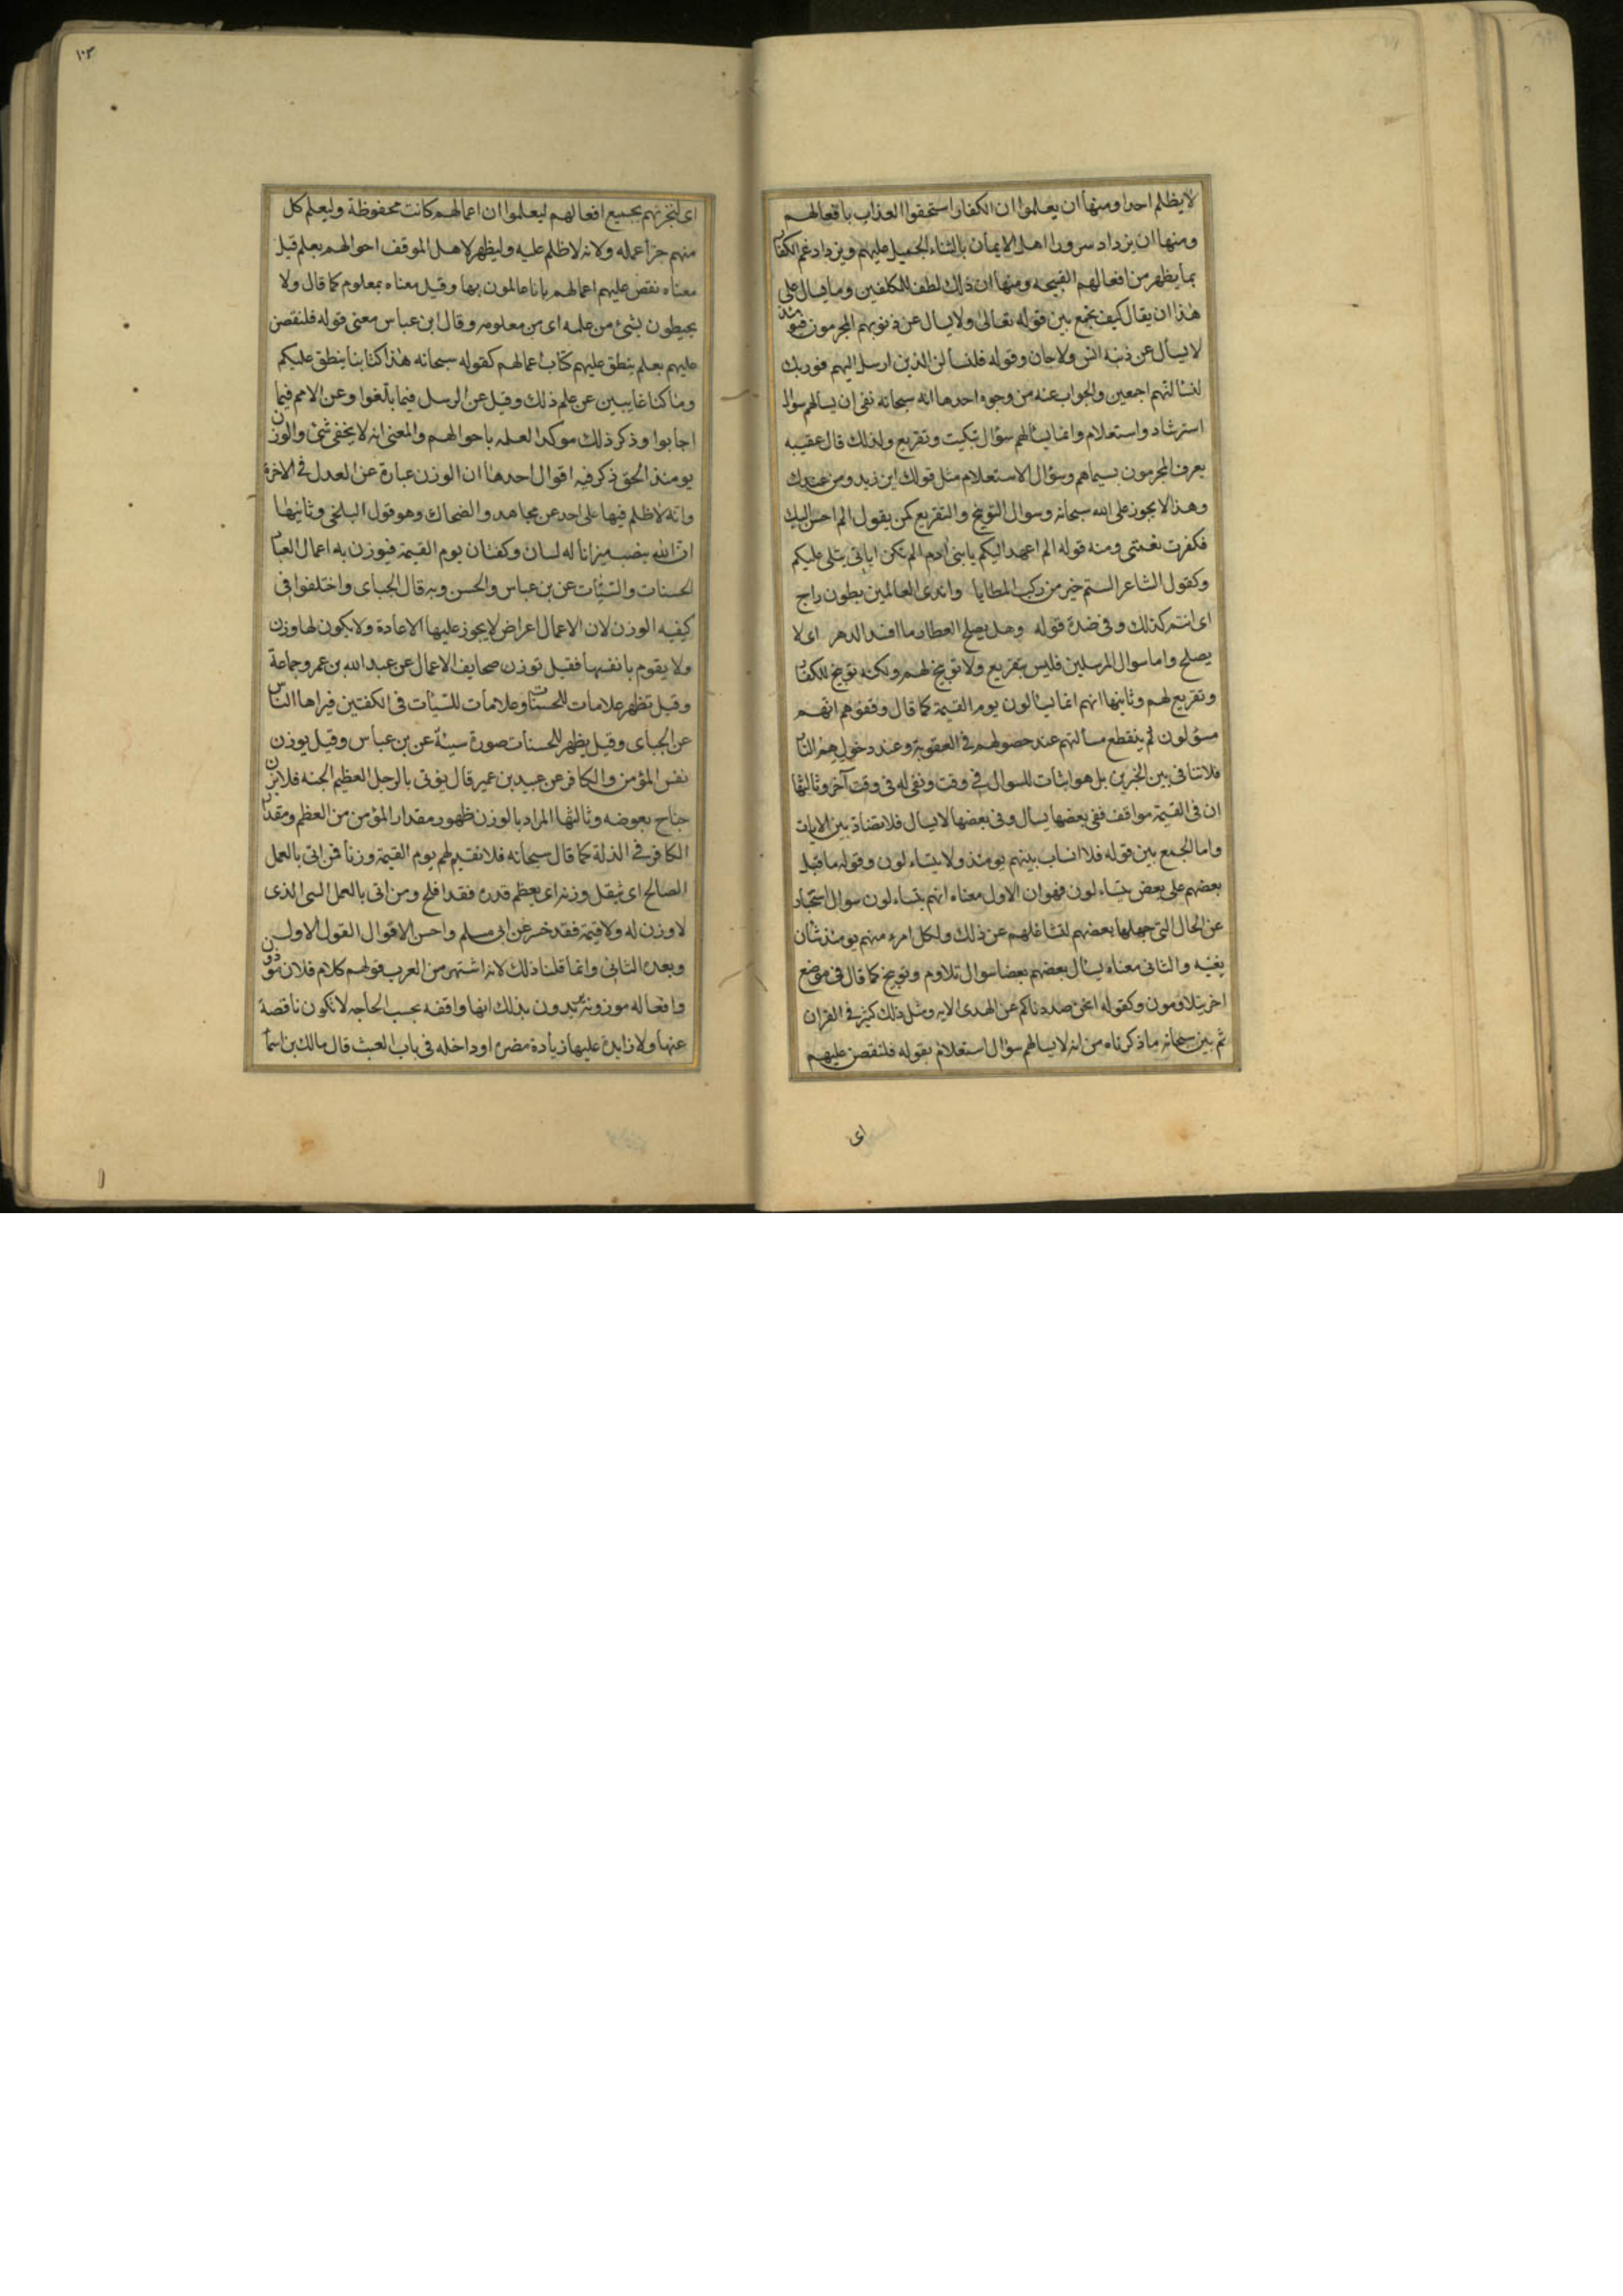 لا يظلم احدا ومنها ان يعلموا ان الكفار استحقوا العذاب بافعالهم
ومنها ان يزداد سرورا اهل الايمان بالثناء الجميل عليهم ويزداد غم الكفار
بما يظهر من افعالهم القبيحه ومنها ان ذلك لطف للمكلفين ومما يسال على
هذا ان يقال كيف يجمع بين قوله تعالى ولا يسال عن ذنوبهم المجرمون فيومئذ
لا يسأل عن ذنبه انس ولا جان وقوله فلنسألن الذين ارسل اليهم فوربك
لنسألنهم اجمعين والجواب عنه من وجوه احدها انه سبحانه نفى ان يسالهم سؤال
استرشاد واستعلام وانما يسألهم سؤال تبكيت وتقريع ولذلك قال عقيبه
يعرف المجرمون بسيماهم وسؤال الاستعلام مثل قولك اين زيد ومن عندك
وهذا لا يجوز على الله سبحانه وسوال التوبيخ والتقريع كمن يقول الم احسن اليك
فكفرت نعمتى ومنه قوله الم اعهد اليكم يا بنى ادم الم تكن اياتى يتلى عليكم
وكقول الشاعر الستم خير من ركب المطايا واندى العالمين بطون راح
اى انتم كذلك وفى ضده قوله وهل يصلح العطار ما افسد الدهر اى لا
يصلح واما سوال المرسلين فليس بتقريع ولا توبيخ لهم ولكنه توبيخ للكفار
وتقريع لهم وثانيها انهم انما يسألون يوم القيمة كما قال وقفوهم انهم
مسؤلون ثم ينقطع مسالتهم عند حصولهم فى العقوبة وعند دخولهم النار
فلا تنافى بين الخبرين بل هو اثبات للسوال فى وقت ونفى له فى وقت آخر وثالثها
ان فى القيمة مواقف ففى بعضها يسال وفى بعضها لا يسال فلا تضاد بين الايات
واما الجمع بين قوله فلا انساب بينهم يومئذ ولا يتساءلون وقوله فاقبل
بعضهم على بعض يتساءلون فهو ان الاول معناه انهم يتساءلون سوال استخبار
عن الحال التى جهلها بعضهم لتشاغلهم عن ذلك ولكل امرء منهم يومئذ شأن
يغنيه والثانى معناه يسأل بعضهم بعضا سوال تلاوم وتوبيخ كما قال فى موضع
اخر يتلاومون وكقوله انحن صددناكم عن الهدى الايه ومثل ذلك كثير فى القران
ثم بين سبحانه ما ذكرناه من انه لا يسالهم سؤال استعلام بقوله فلنقصن عليهم
اى
١٠٣
اى لنخبرنهم بجميع افعالهم ليعلموا ان اعمالهم كانت محفوظة وليعلم كل
منهم جزأ عمله ولانه لا ظلم عليه وليظهر لاهل الموقف احوالهم بعلم قيل
معناه نقص عليهم اعمالهم بانا عالمون بها وقيل معناه بمعلوم كما قال ولا
يحيطون بشئ من علمه اى من معلومه وقال ابن عباس معنى قوله فلنقصن
عليهم بعلم ينطق عليهم كتاب اعمالهم كقوله سبحانه هذا كتابنا ينطق عليكم
وما كنا غايبين عن علم ذلك وقيل عن الرسل فيما بلغوا وعن الامم فيما
اجابوا وذكر ذلك موكدا لعلمه باحوالهم والمعنى انه لا يخفى شئ والوزن
يومئذ الحق ذكر فيه اقوال احدها ان الوزن عبارة عن العدل فى الاخرة
وانه لا ظلم فيها على احد عن مجاهد والضحاك وهو قول البلخى وثانيها
ان الله ينصب ميزانا له لسان وكفتان يوم القيمة فيوزن به اعمال العباد
الحسنات والسيئات عن بن عباس والحسن وبه قال الجباى واختلفوا فى
كيفيه الوزن لان الاعمال اعراض لا يجوز عليها الاعادة ولا يكون لها وزن
ولا يقوم بانفسها فقيل توزن صحايف الاعمال عن عبد الله بن عمر وجماعة
وقيل تظهر علامات للحسنات وعلامات للسيئات فى الكفتين فيراها الناس
عن الجباى وقيل يظهر للحسنات صورة سيئة عن بن عباس وقيل يوزن
نفس المؤمن والكافر عن عبيد بن عمير قال يؤتى بالرجل العظيم الجثه فلا يزن
جناح بعوضه وثالثها المراد بالوزن ظهور مقدار المؤمن من العظم ومقدار
الكافر فى الذلة كما قال سبحانه فلا نقيم لهم يوم القيمة وزنا فمن اتى بالعمل
الصالح اى ثقل وزنه اى يعظم قدره فقد افلح ومن اتى بالعمل السى الذى
لا وزن له ولا قيمة فقد خسر عن ابى مسلم واحسن الاقوال القول الاول
وبعده الثانى وانما قلنا ذلك لانه اشتهر من العرب قولهم كلام فلان موزون
وافعاله موزونه يريدون بذلك انها واقفه بحسب الحاجه لا تكون ناقصة
عنها ولا زايدة عليها زيادة مضره او داخله فى باب العبث قال مالك بن اسمآ